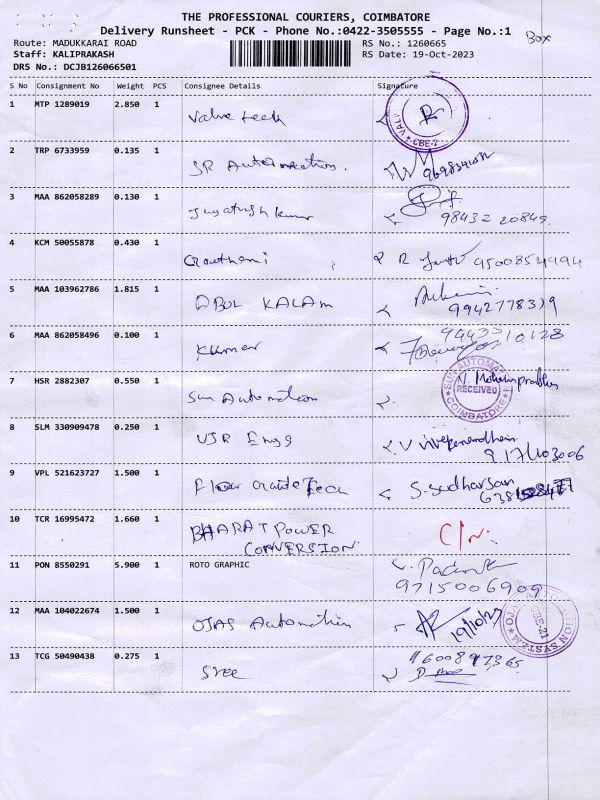 THE PROFESSIONAL COURIERS, COIMBATORE
Delivery Runsheet - PCK - Phone No.:0422-3505555 - Page No.:1
Box
Route: MADUKKARAI ROAD RS No.: 1260665
Staff: KALIPRAKASH RS Date: 19-Oct-2023
DRS No.: DCJB126066501
S No Consignment No Weight PCS Consignee Details Signature
1 MTP 1289019 2.850 1 Valve tech
CBE-2
2 TRP 6733959 0.135 1 SR Automation.
3 MAA 862058289 0.130 1
98432 20849
4 KCM 50055878 0.430 1 Gowthami R 9500854494
5 MAA 103962786 1.815 1 ABUL KALAM
9942778319
6 MAA 862058496 0.100 1 Kumar
7 HSR 2882307 0.550 1 Sun Automation
SUN AUTOMATION
RECEIVED
COIMBATORE
8 SLM 330909478 0.250 1 VJR Engg
9 VPL 521623727 1.500 1 S. Sudharsan
10 TCR 16995472 1.660 1 BHARAT POWER
CONVERSION
11 PON 8550291 5.900 1 ROTO GRAPHIC
9715006909
12 MAA 104022674 1.500 1 OJAS Automation 19/10/23
CBE-21
13 TCG 50490438 0.275 1 Sree